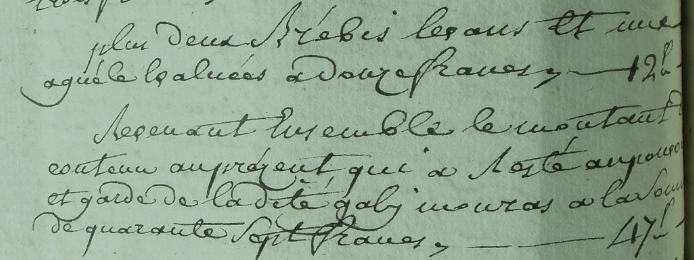 plus deux Brébis leçons Et une
aguéle Évaluées a douze francs, — 12 lt
Revenant Ensemble le montant
contenu au présent qui a Resté au pouvoir
et garde de la dite gabÿ mouras a la Som
de quarante Sept francs, — 47 lt